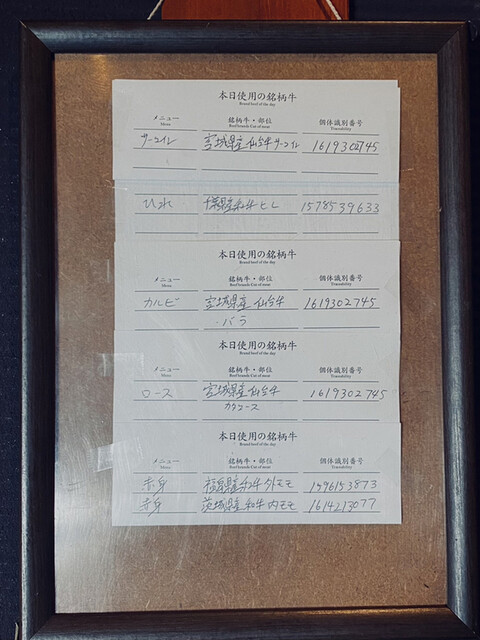 本日使用の銘柄牛
Brand beef of the day
メニュー 銘柄牛・部位 個体識別番号
Menu Beef brands Cut of meat Traceability
サーロイン 宮城県産仙台牛サーロイン 1619302745
ひれ 和牛ヒレ 1578539633
本日使用の銘柄牛
Brand beef of the day
メニュー 銘柄牛・部位 個体識別番号
Menu Beef brands Cut of meat Traceability
カルビ 宮城県産仙台牛 1619302745
・バラ
本日使用の銘柄牛
Brand beef of the day
メニュー 銘柄牛・部位 個体識別番号
Menu Beef brands Cut of meat Traceability
ロース 宮城県産仙台牛 1619302745
カタロース
本日使用の銘柄牛
Brand beef of the day
メニュー 銘柄牛・部位 個体識別番号
Menu Beef brands Cut of meat Traceability
赤身 和牛外モモ 1596153873
赤身 茨城県産和牛内モモ 1614213077